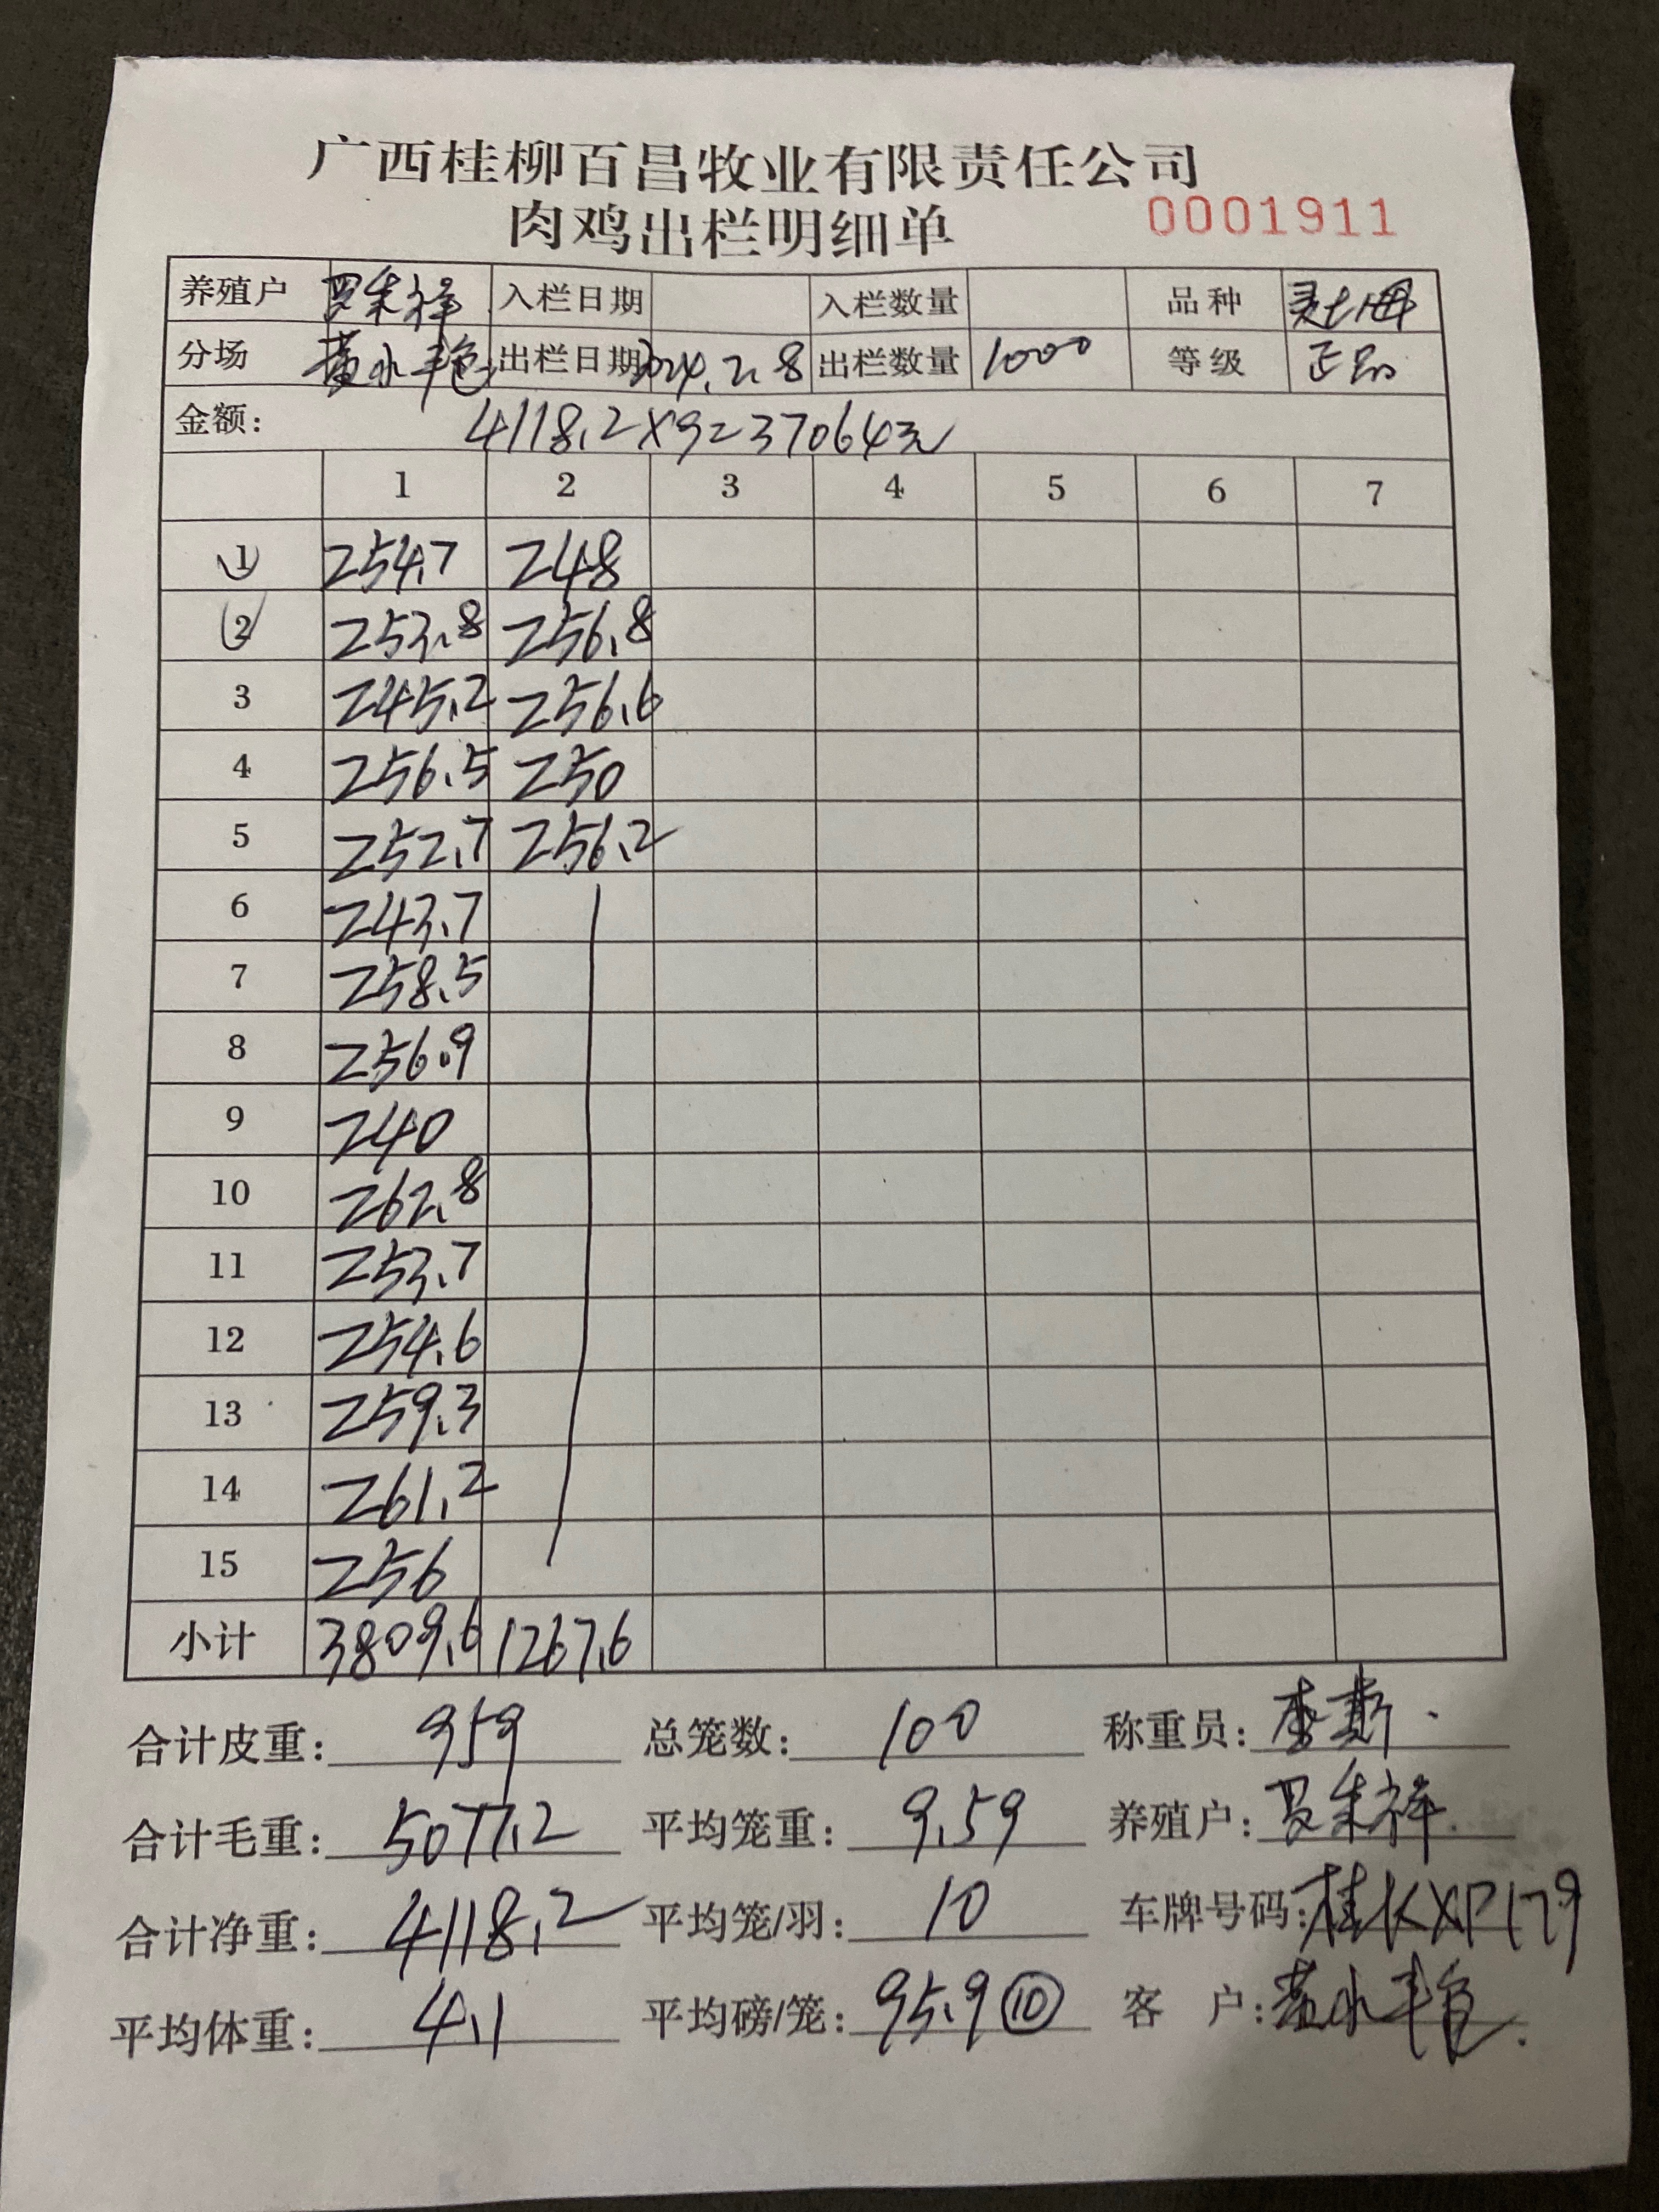 广西桂柳百昌牧业有限责任公司
肉鸡出栏明细单 0001911
养殖户 罗朱祥 入栏日期 入栏数量 品种
分场 黄水丰色 出栏日期 2024.2.8 出栏数量 1000 等级 正品
金额: 4118.2×9=37064元
1 2 3 4 5 6 7
1 254.7 248
2 253.8 256.8
3 245.2 256.6
4 256.5 250
5 252.7 256.2
6 243.7
7 258.5
8 256.9
9 240
10 262.8
11 253.7
12 254.6
13 259.3
14 261.2
15 256
小计 3809.6 1267.6
合计皮重: 959 总笼数: 100 称重员: 李
合计毛重: 5077.2 平均笼重: 9.59 养殖户: 罗朱祥
合计净重: 4118.2 平均笼/羽: 10 车牌号码: 桂KXP179
平均体重: 4.1 平均磅/笼: 95.9 ⑩ 客户: